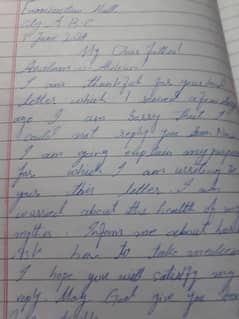 Examination Hall
City A.B.C
1 June
My Dear Father!
I am thankful for your kind
letter which I received a few days
ago I am sorry that I
could not reply you soon Now
I am going explain my purpose
for which I am writing to
your this letter. I am
worried about the health of my
mother. Inform me about her
Ask her to take medicine
I hope you will satisfy my
reply. May God give you